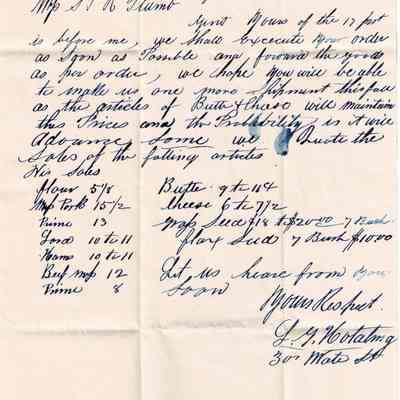 Mrs S. & R Plumb
Gent Yours of the 17 pst
is before me, we Shall Excecute your order
as Soon as Possible and foward the goods
as per order, we hope you will be able
to make us one more Shipment this fall
as the articles of Butte & Cheese will maintain
this Prices and th Probability is it will
Advance Some we Quote the
Sales of the folling articles
His Sales
flour 5/8 Butte 9 to 11 4
Mss Pork 15/2 Cheese 6 to 7/2
Prime 13 grass Seed $18 to $20.00 7 Bush
Lard 10 to 11 flax Seed 7 Bush $10.00
Hams 10 to 11
Beef mss 12 Let us heare from you
Prime 8 Soon
Yours Respct.
L. G. Hotaling
30 Water St